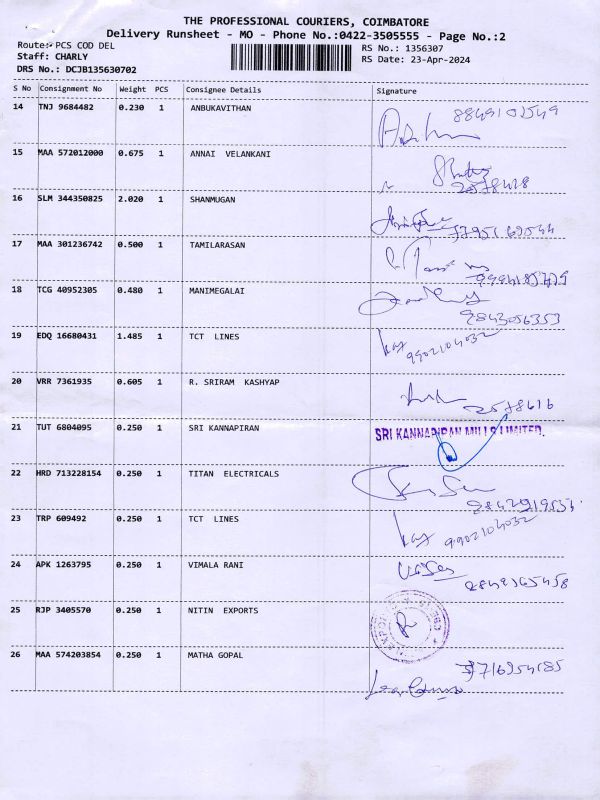 THE PROFESSIONAL COURIERS, COIMBATORE
Delivery Runsheet - MO - Phone No.:0422-3505555 - Page No.:2
Route: PCS COD DEL
RS No.: 1356307
Staff: CHARLY
RS Date: 23-Apr-2024
DRS No.: DCJB135630702
S No Consignment No Weight PCS Consignee Details Signature
14 TNJ 9684482 0.230 1 ANBUKAVITHAN
15 MAA 572012000 0.675 1 ANNAI VELANKANI
2578428
16 SLM 344350825 2.020 1 SHANMUGAN
7795169544
17 MAA 301236742 0.500 1 TAMILARASAN
18 TCG 40952305 0.480 1 MANIMEGALAI
9843056353
19 EDQ 16680431 1.485 1 TCT LINES
9902104032
20 VRR 7361935 0.605 1 R. SRIRAM KASHYAP
2578616
21 TUT 6804095 0.250 1 SRI KANNAPIRAN
SRI KANNAPIRAN MILLS LIMITED.
22 HRD 713228154 0.250 1 TITAN ELECTRICALS
23 TRP 609492 0.250 1 TCT LINES
9902104032
24 APK 1263795 0.250 1 VIMALA RANI
25 RJP 3405570 0.250 1 NITIN EXPORTS
26 MAA 574203854 0.250 1 MATHA GOPAL